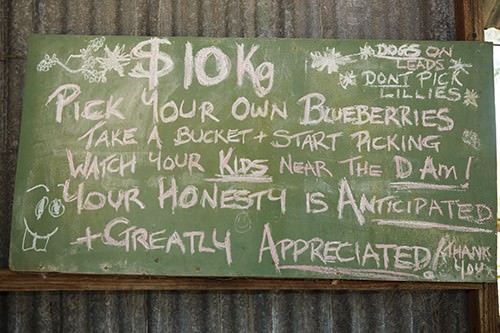 $10Kg
DOGS ON
LEADS
DONT PICK
LILLIES
PICK YOUR OWN BLUEBERRIES
TAKE A BUCKET + START PICKING
WATCH YOUR KIDS NEAR THE DAM!
YOUR HONESTY IS ANTICIPATED
+ GREATLY APPRECIATED/
THANK
YOU